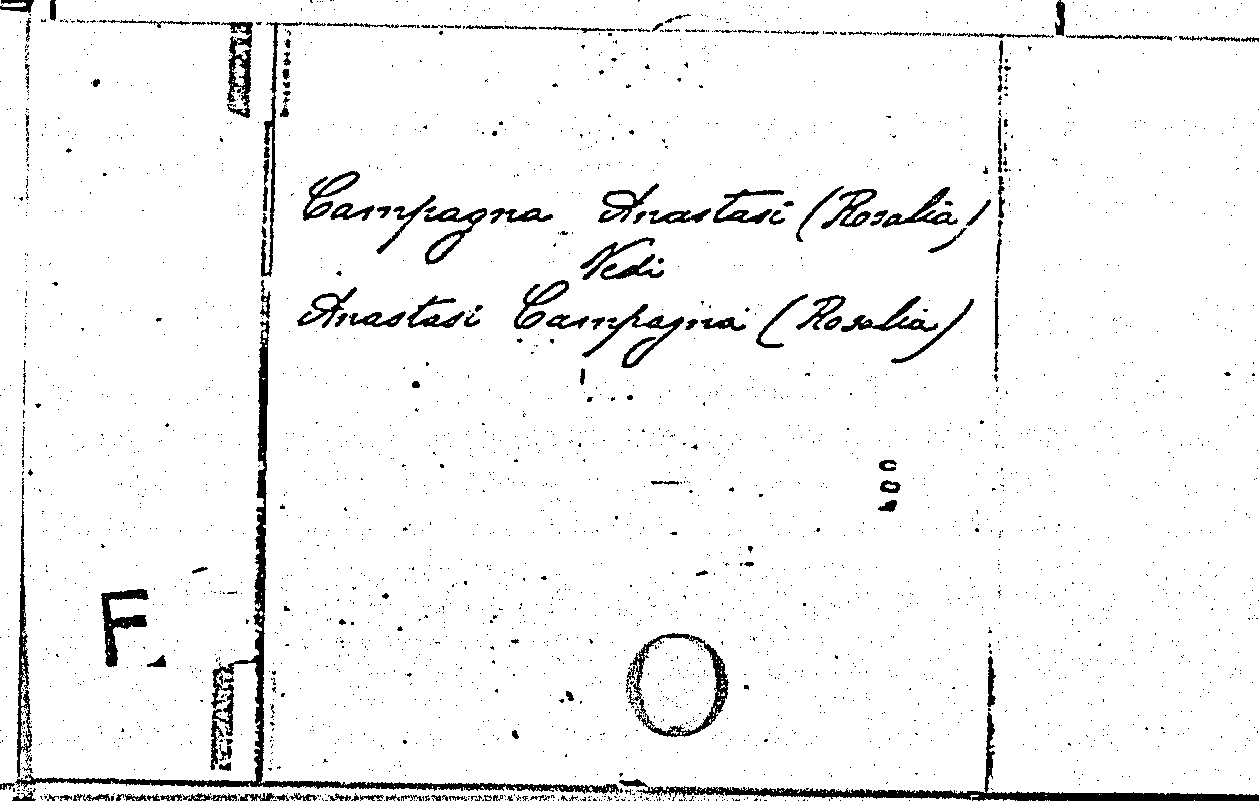 Campagna Anastasi (Rosalia)
Vedi
Anastasi Campagna (Rosalia)
F.